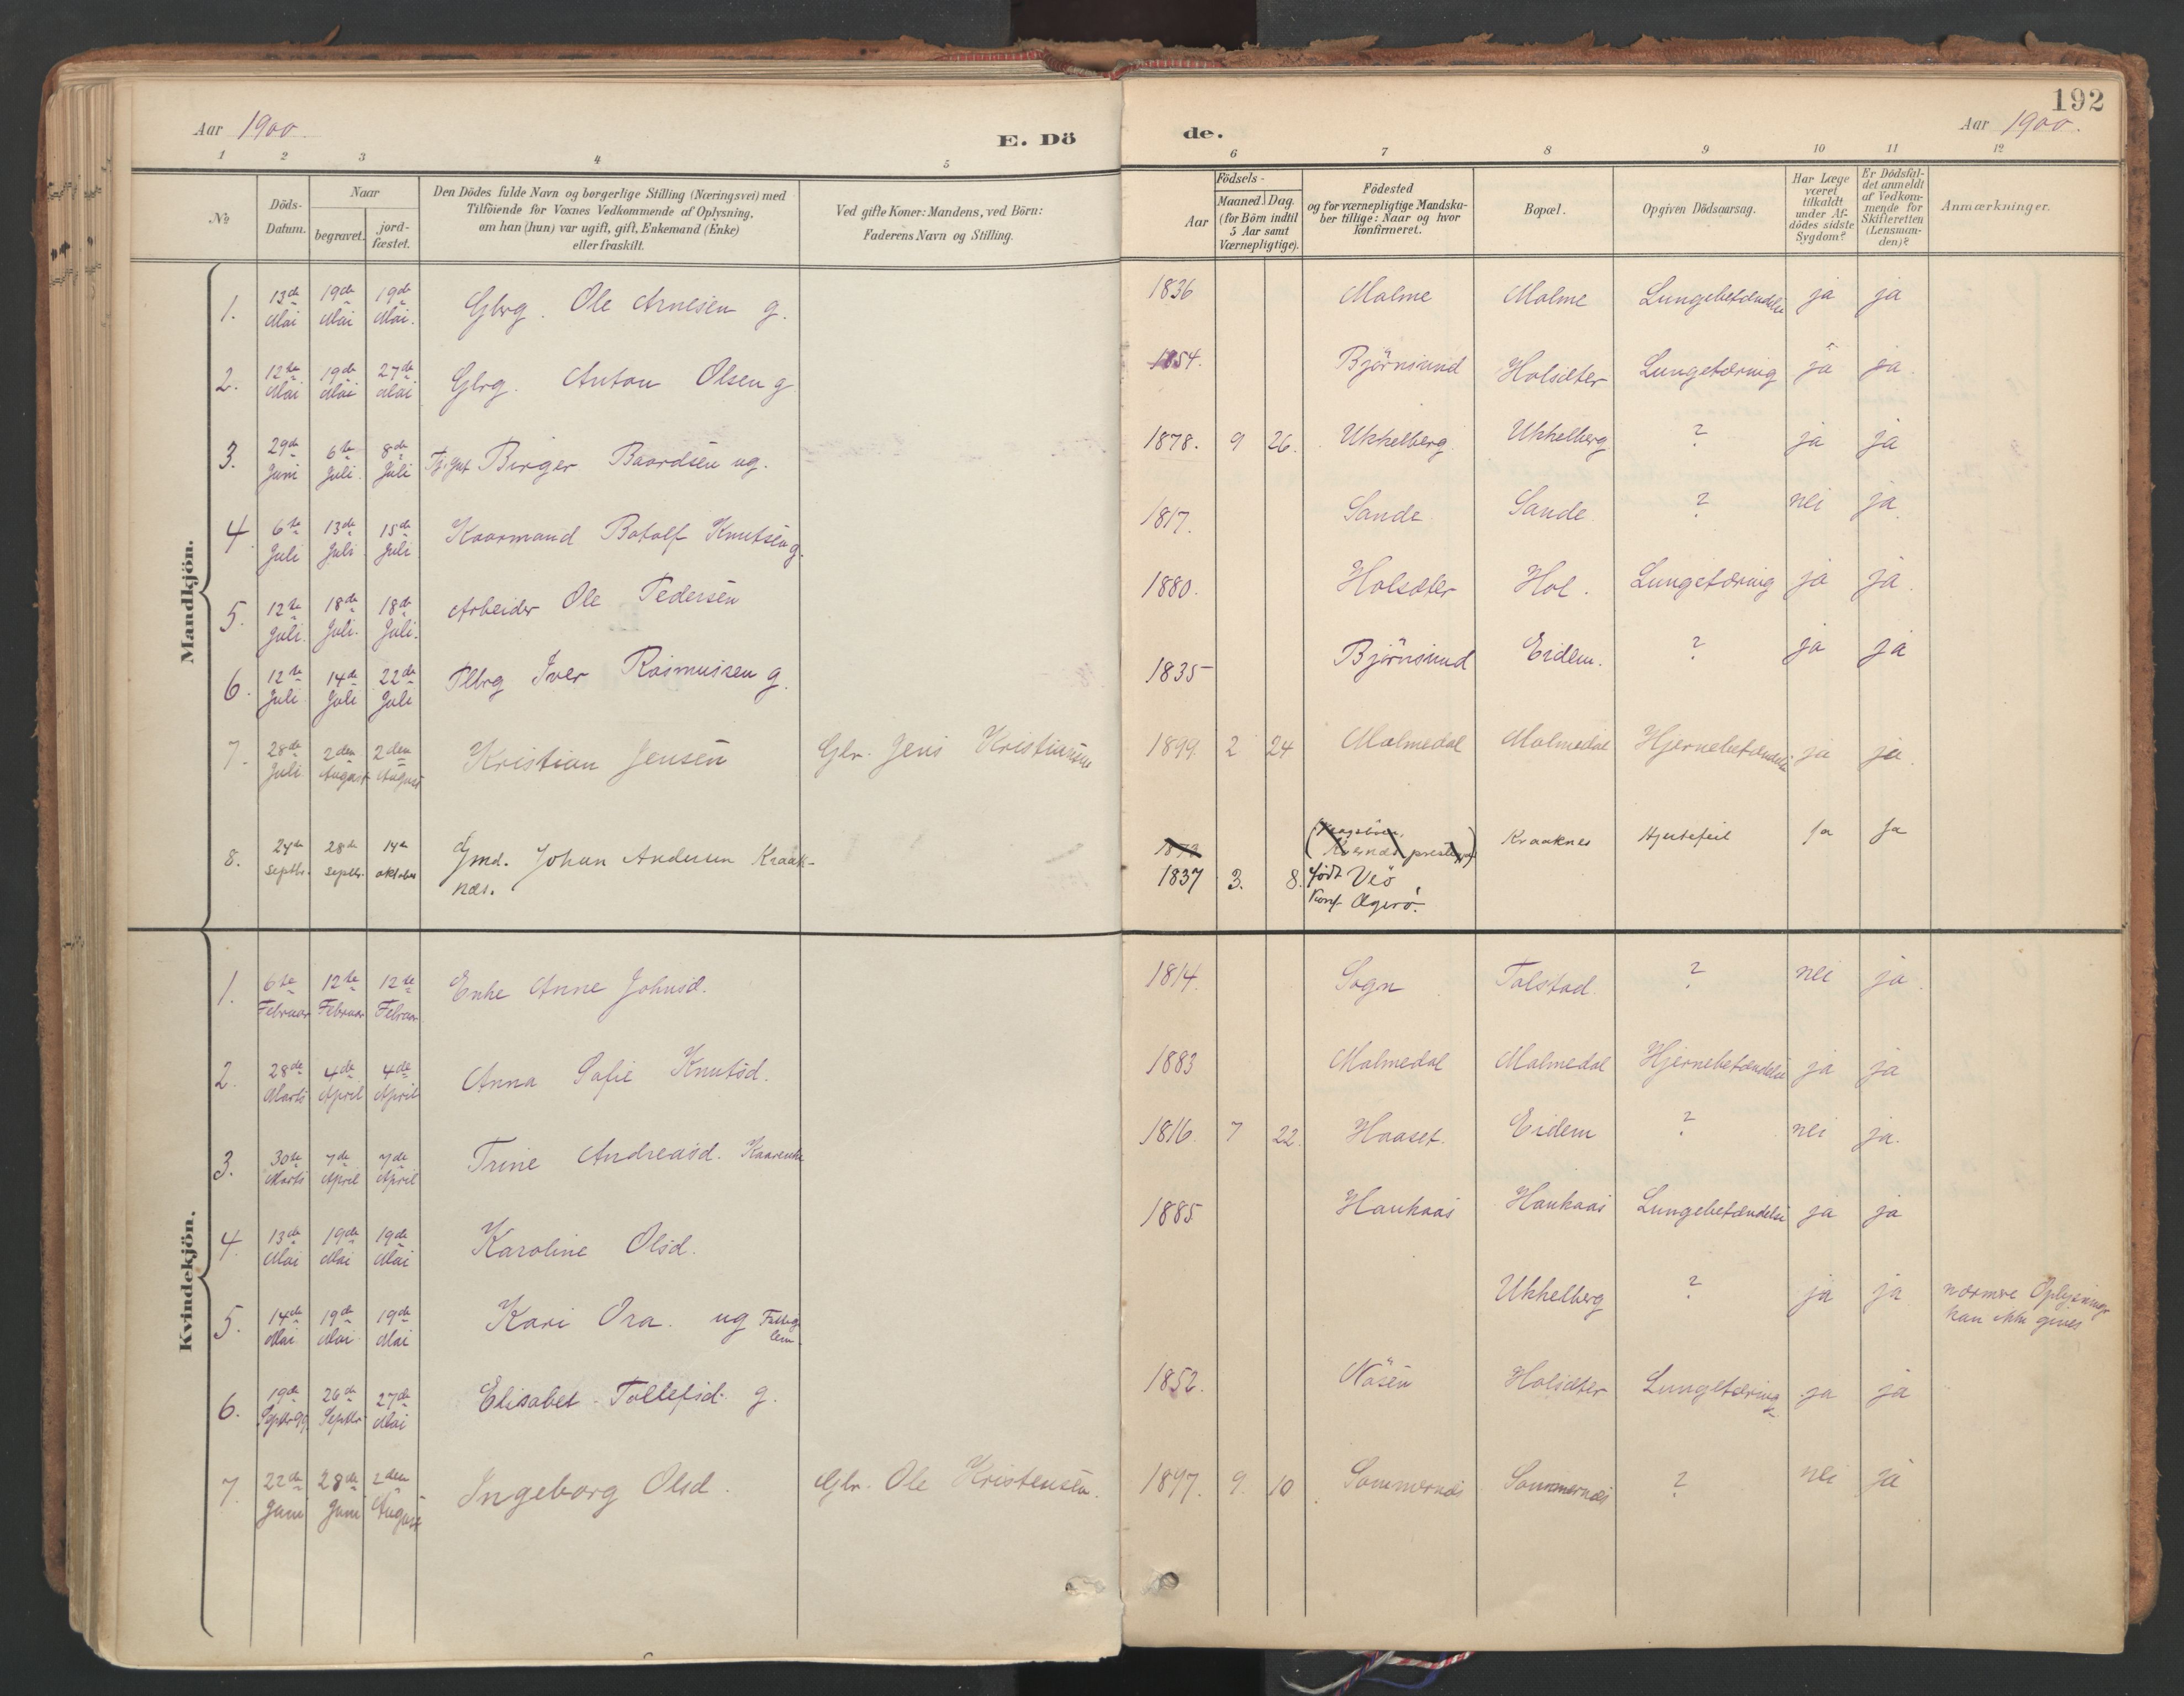 192
Aar 1900. E. Dö de. Aar 1900.
1 2 3 4 5 6 7 8 9 10 11 12
No
Döds-
Datum.
Naar
begravet.
jord-
fæstet.
Den Dödes fulde Navn og borgerlige Stilling (Næringsvei) med
Tilföiende for Voxnes Vedkommende af Oplysning,
om han (hun) var ugift, gift, Enkemand (Enke)
eller fraskilt.
Ved gifte Koner: Mandens, ved Börn:
Faderens Navn og Stilling.
Födsels-
Aar
Maaned. Dag.
(for Börn indtil
5 Aar samt
Værnepligtige).
Födested
og for værnepligtige Mandska-
ber tillige: Naar og hvor
konfirmeret.
Bopæl.
Opgiven Dödsaarsag.
Har Læge
været
tilkaldt
under Af-
dödes sidste
Sygdom?
Er Dödsfal-
det anmeldt
af Vedkom-
mende for
Skifteretten
(Lensman-
den)?
Anmærkninger.
Mandkjön.
1. 13de Mai 19de Mai 19de Mai. Gbrg. Ole Arnesen g. 1836 Malme Malme Lungebetændelse ja ja
2. 12te Mai 19de Mai 27de Mai Gbrg. Anton Olsen g 1854. Björnsund Holsæter Lungetæring ja ja
3. 29de Juni 6te Juli 8de Juli Tj.gut Birger Baardsen ug. 1878. 9 26. Ukkelberg Ukkelberg ? ja ja
4. 6te Juli 13de Juli 15de Juli Kaarmand Botolf Knutsen g. 1817. Sande Sande ? nei ja
5. 12te Juli. 18de Juli. 18de Juli. Arbeider Ole Pedersen 1880. Holsæter Hol. Lungetæring ja ja.
6. 12te Juli 14de Juli 22de Juli Plbrg Iver Rasmussen g. 1835 Björnsund Eidem. ? ja ja
7. 28de Juli 2den August 2den August Kristian Jensen Gbr. Jens Kristiansen 1899. 2 24 Malmedal Malmedal Hjernebetændelse ja ja.
8. 24de Septbr. 28de Septbr. 14de oktober Gmd. Johan Andersen Kraak-
næs.
1873
1837 3. 8. født Veö
Konf. Agerö.
Kraaknes Hjertefeil Ja Ja
Kvindekjön.
1. 6te Februar 12te Februar 12te Februar Enke Anne Johnsd. 1814. Sogn Tolstad. ? nei ja.
2. 28de Marts 4de April 4de April Anna Sofie Knutsd. 1883 Malmedal Malmedal Hjernebetændelse ja ja
3. 30te Marts 7de April 7de April Trine Andreasd. Kaarenke 1816. 7 22. Haaset. Eidem ? nei ja.
4. 13de Mai 19de Mai 19de Mai Karoline Olsd. 1885 Haukaas Haukaas Lungebetændelse ja ja
5. 14de Mai. 19de Mai. 19de Mai Kari Ora. ug Fattig-
lem. Ukkelberg ? ja ja nærmere Oplysninger
kan ikke gives
6. 19de Septbr 99. 26de Septbr. 27de Mai Elisabet Tollefsd. g. 1852. Nåsen Holsæter Lungetæring ja ja
7. 22de Juni 28de Juni 2den August Ingeborg Olsd. Gbr. Ole Kristensen. 1897. 9. 10 Sommernæs Sommernæs ? nei ja